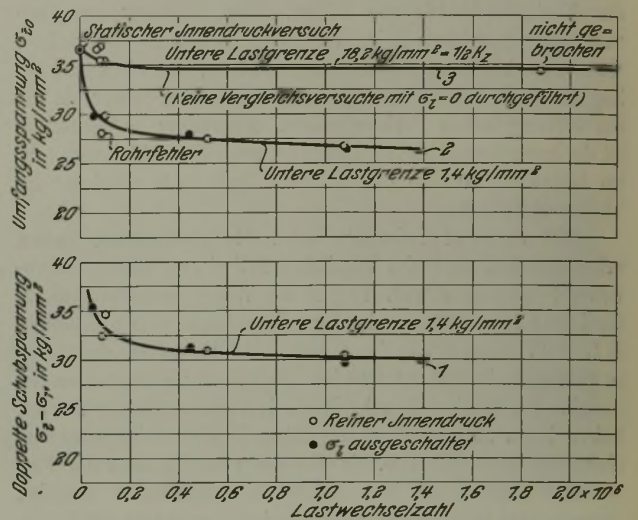 Umfangsspannung σt0
in kg/mm²
40
35
30
25
20
Statischer Jnnendruckversuch
nicht ge=
brochen
Untere Lastgrenze 18,2kg/mm² = 1/2 Kz
3
(Keine Vergleichsversuche mit σl=0 durchgeführt)
2
Rohrfehler
Untere Lastgrenze 1,4kg/mm²
Doppelte Schubspannung
in kg/mm²
40
35
30
25
20
Untere Lastgrenze 1,4kg/mm²
1
○ Reiner Jnnendruck
● σl ausgeschaltet
0 0,2 0,4 0,6 0,8 1,0 1,2 1,4 1,6 1,8 2,0×10⁶
Lastwechselzahl